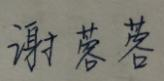 谢蓉蓉